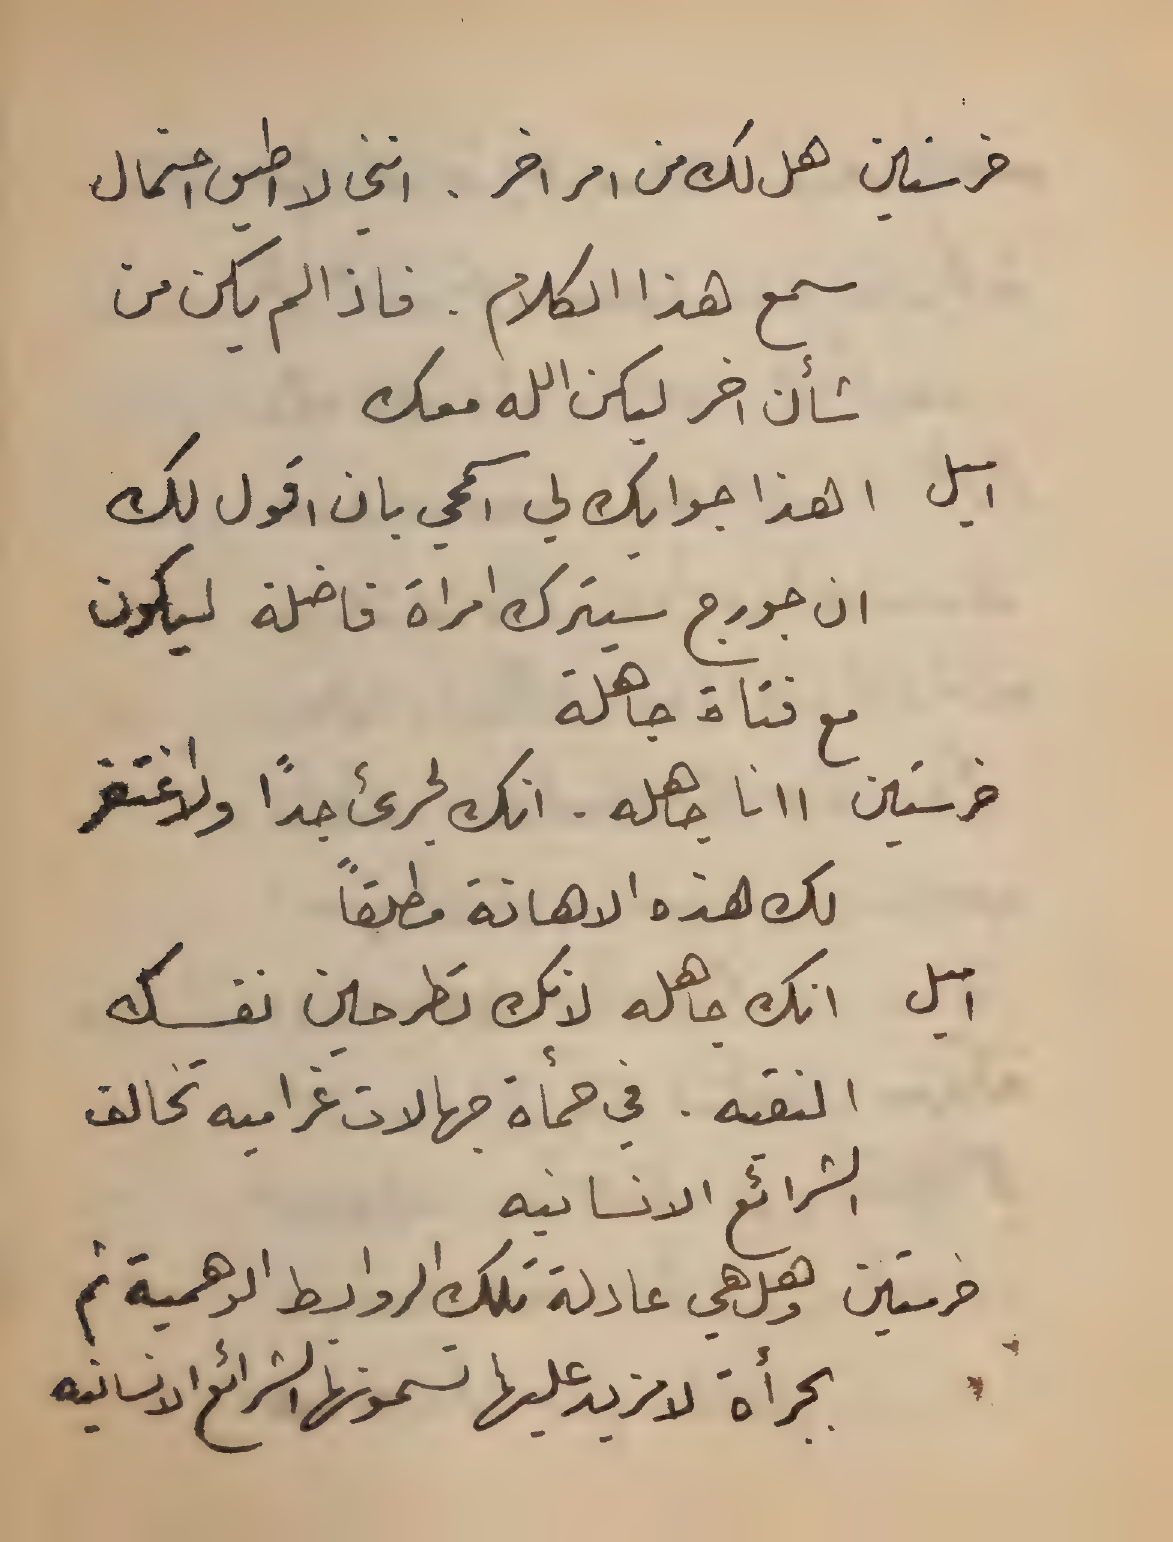 خرستين هل لك من امر اخر . انني لا اطيق احتمال
سمع هذا الكلام . فاذا لم يكن من
شأن اخر ليكن الله معك
اميل اهذا جوابك لي اسمحي بان اقول لك
ان جورج سيترك امراة فاضلة ليكون
مع فتاة جاهلة
خرستين اانا جاهله . انك لجرئ جدًا ولا اغتفر
لك هذه الاهانة مطلقاً
اميل انك جاهله لانك تطرحين نفسك
النقيه . في حمأة جهالات غراميه تخالف
الشرائع الانسانيه
خرستين وهل هي عادلة تلك الروابط الوهمية ثم
بجرأة لا مزيد عليها تسمونها الشرائع الانسانيه